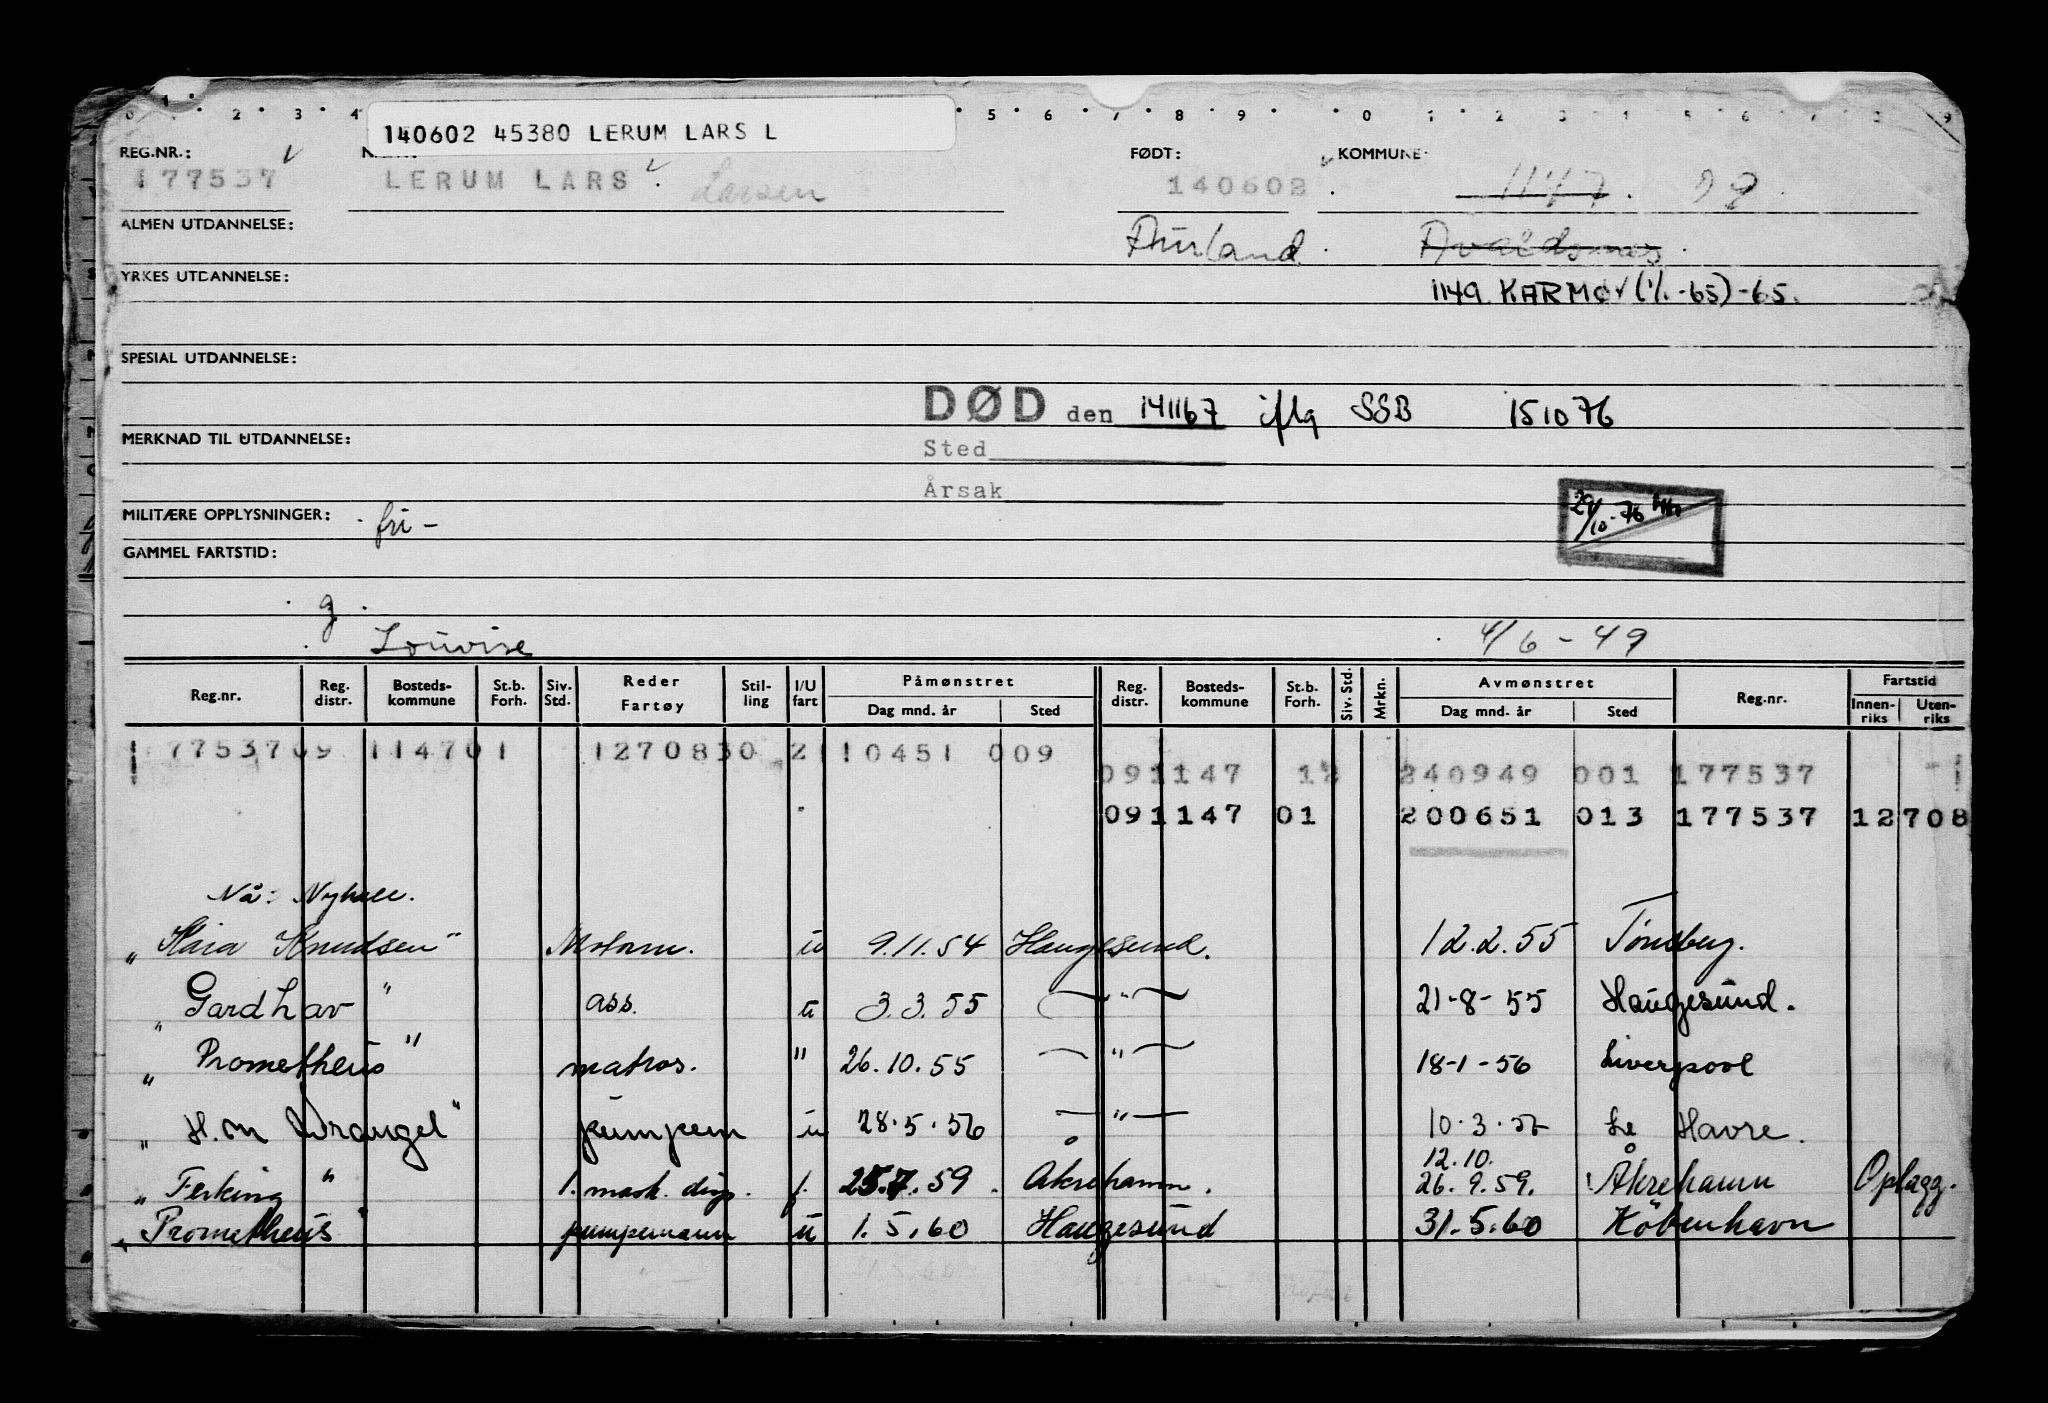 0 1 2 3 4 5 6 7 8 9 0 1 2 3 4 5 6 7 8 9
140602 45380 LERUM LARS L
REG.NR.: FØDT: KOMMUNE:
177537 LERUM LARS Larsen 140602 1147
ALMEN UTDANNELSE: Aurland Avaldsnes
YRKES UTDANNELSE: 1149 KARMØY (1/1-65)-65.
SPESIAL UTDANNELSE:
DØD den 141167 iflg SSB 151076
MERKNAD TIL UTDANNELSE: Sted
Årsak
29/10-76
MILITÆRE OPPLYSNINGER: fri -
GAMMEL FARTSTID:
g
Louvise 4/6-49
Reg.nr. Reg. distr. Bosteds-kommune St.b. Forh. Siv. Std. Reder Fartøy Stil-ling I/U fart Påmønstret Dag mnd. år Sted Reg. distr. Bosteds-kommune St.b. Forh. Siv. Std. Mrkn. Avmønstret Dag mnd. år Sted Reg.nr. Fartstid Innen-riks Uten-riks
177537 09 1147 01 12708 30 2 110451 009
09 1147 12 240949 001 177537
09 1147 01 200651 013 177537 12708
Nå: Nyhall.
" Kaia Knudsen " Motorm. u 9.11.54 Haugesund. 12.2.55 Tønsberg.
" Gardhav " ass. u 3.3.55 — " — 21-8-55 Haugesund.
" Prometheus " matros. " 26.10.55 — " — 18-1-56 Liverpool
" H.M Wrangel " pumpem u 28.5.56 — " — 10.3.57 Le Havre.
12.10.
" Ferking " 1. mask. disp. f. 25.7.59. Åkrehamn. 26.9.59. Åkrehamn Oplagg.
" Prometheus " pumpemann u 1.5.60 Haugesund 31.5.60 København